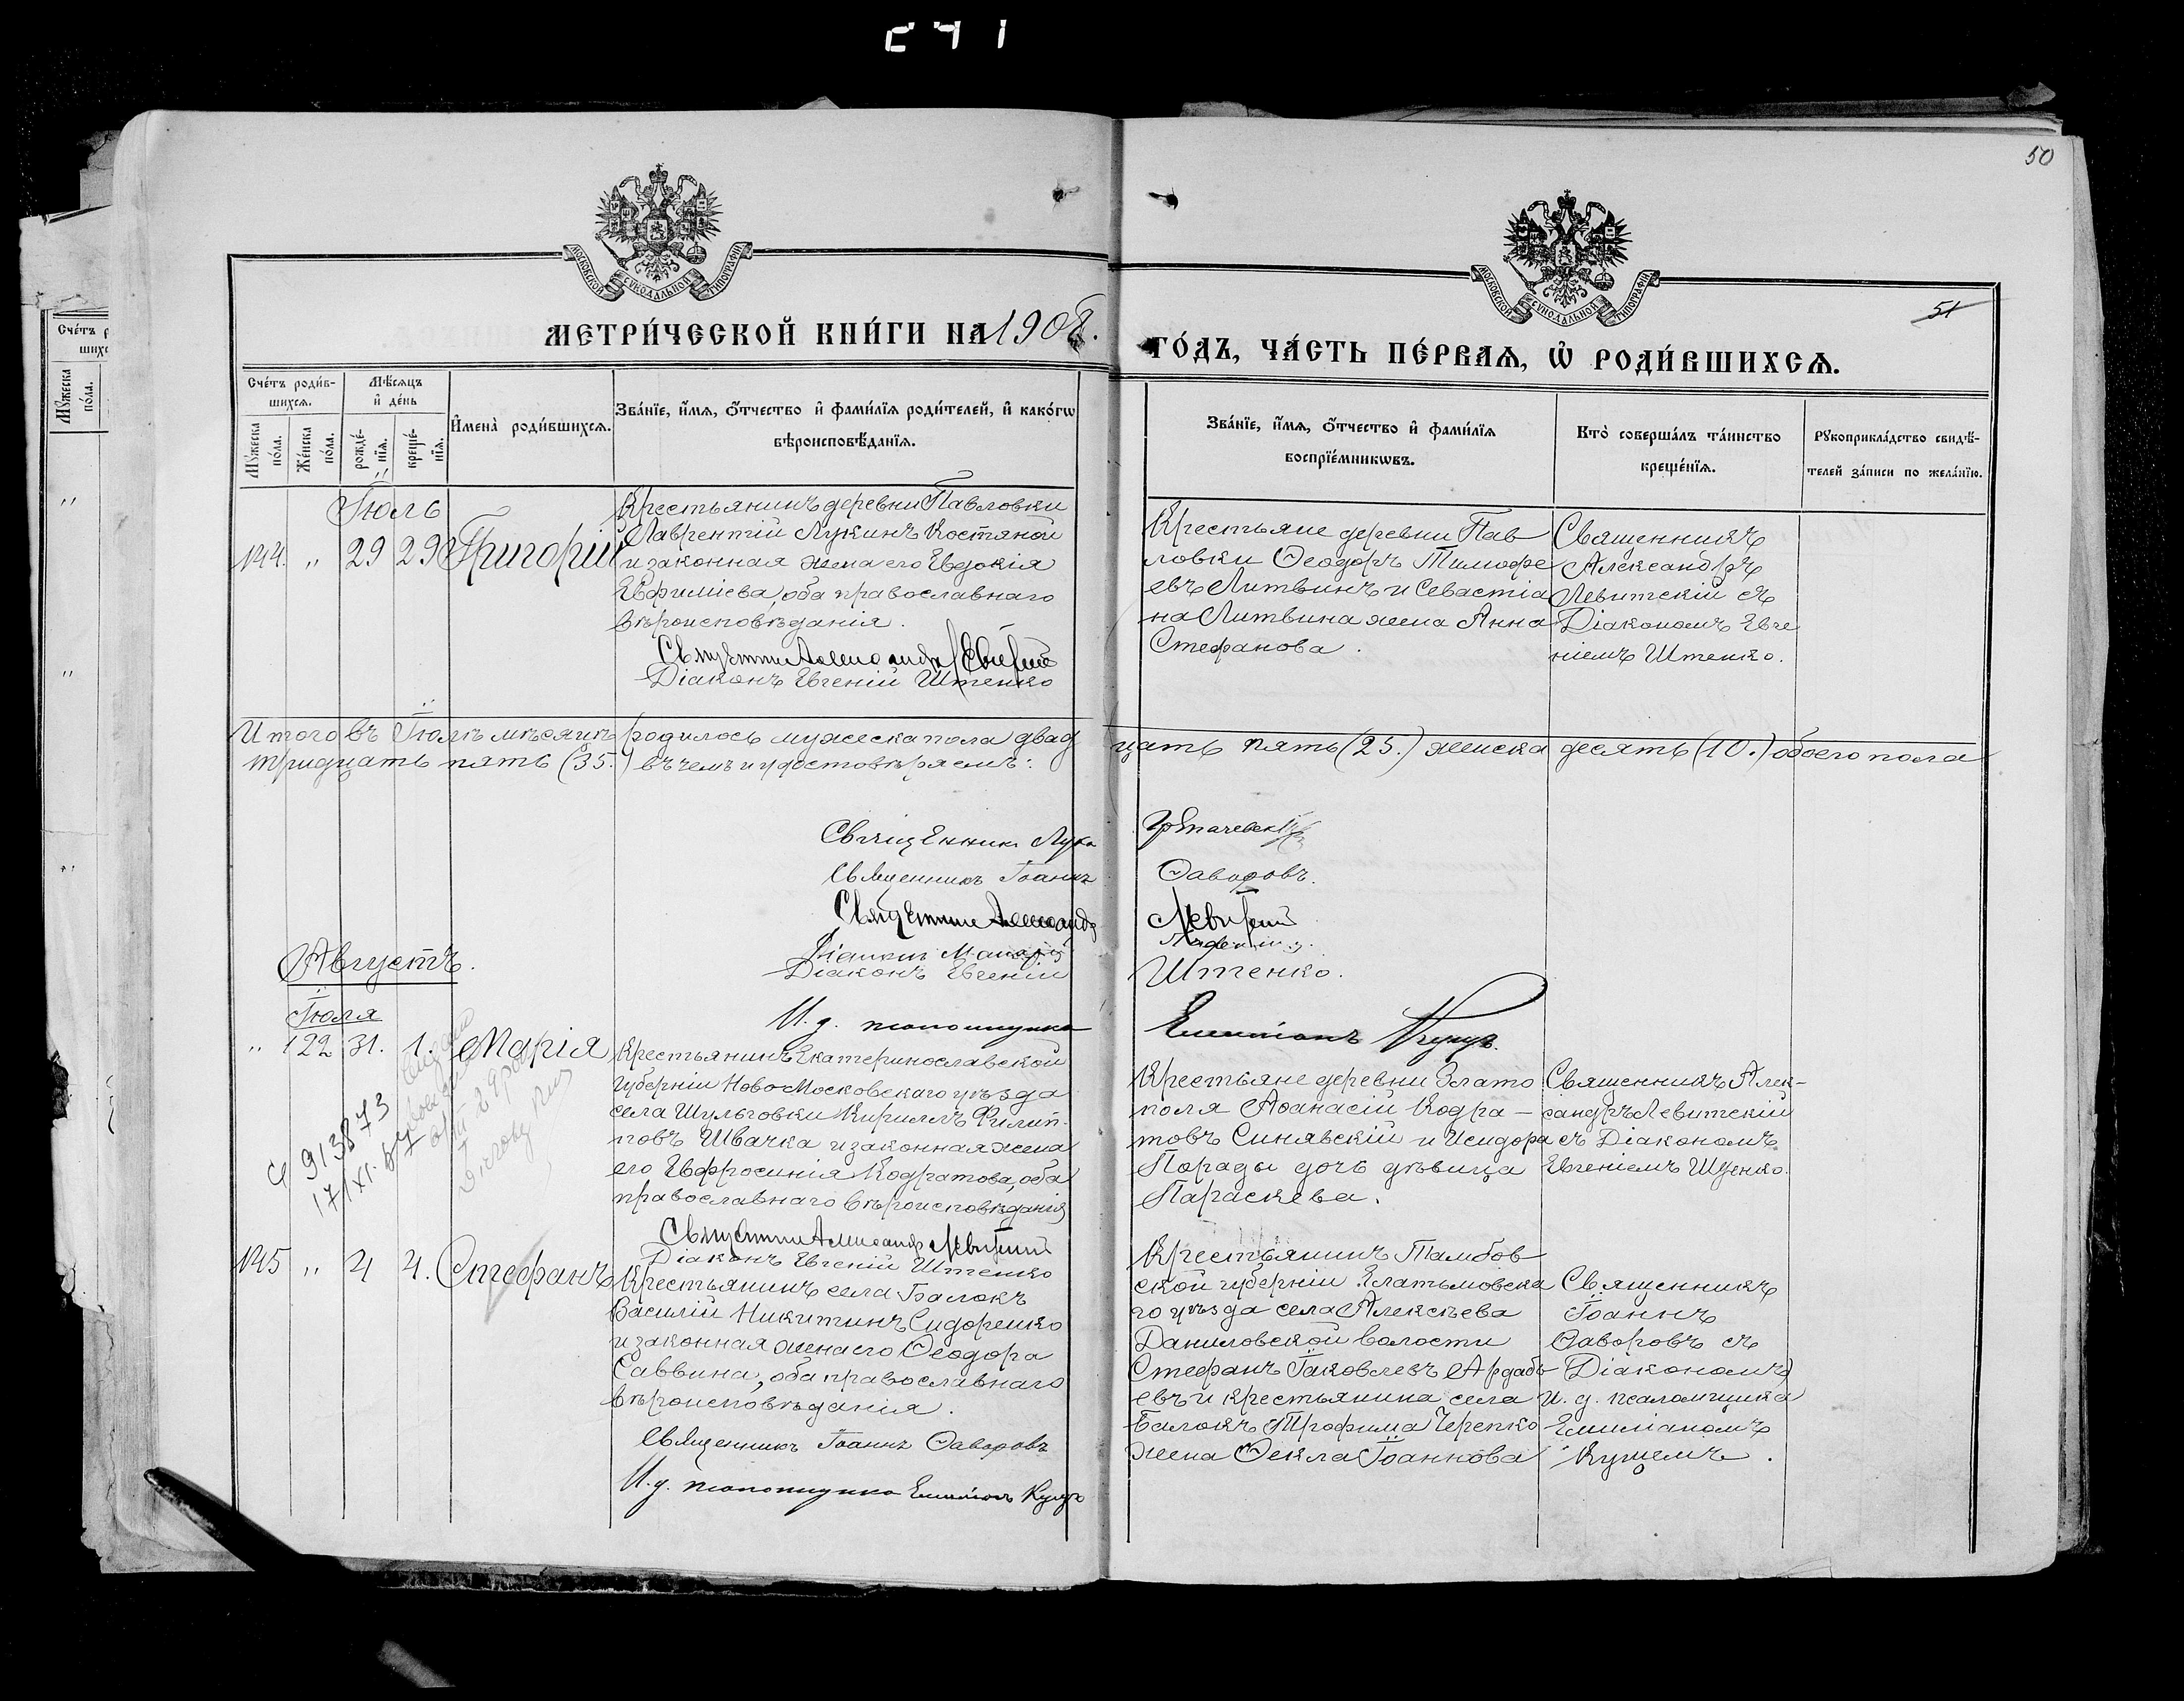 50
МОСКОВСКОЙ СѴНОДАЛЬНОЙ ТИПОГРАФІИ
МОСКОВСКОЙ СѴНОДАЛЬНОЙ ТИПОГРАФІИ
51
МЕТРИ́ЧЕСКОЙ КНИ́ГИ НА 1908.
ГО́ДЪ, ЧА́СТЬ ПЕ́РВАѦ, Ѡ҆ РОДИ́ВШИХСѦ.
Сче́тъ роди́в-
шихсѧ.
Мꙋ́жеска по́ла.
Же́нска по́ла.
Мѣ́сѧцъ и҆ де́нь
рожде́-нїѧ.
креще́-нїѧ.
И҆мена̀ роди́вшихсѧ.
Зва́нїе, и҆́мѧ, ѻ҆́тчество и҆ фами́лїѧ роди́телей, и҆ како́гѡ
вѣроисповѣ́данїѧ.
Зва́нїе, и҆́мѧ, ѻ҆́тчество и҆ фами́лїѧ
воспрїе́мникѡвъ.
Кто̀ соверша́лъ та́инство
креще́нїѧ.
Рꙋкоприкла́дство свидѣ́-
телей за́писи по жела́нїю.
Іюль
144. " 29 29 Григорій
Крестьянинъ деревни Павловки
Лаврентій Лукинъ Костяной
и законная жена его Евдокія
Евфиміева, оба православнаго
вѣроисповѣданія.
Священникъ Александръ Левитскій
Діаконъ Евгеній Штенко
Крестьяне деревни Пав
ловки Ѳеодоръ Тимофе
евъ Литвинъ и Севастіа
на Литвина жена Анна
Стефанова.
Священникъ
Александръ
Левитскій съ
Діакономъ Евге
ніемъ Штенко.
Итого въ Іюлѣ мѣсяцѣ родилось мужеска пола двад
цать пять (25.) женска десять (10.) обоего пола
тридцать пять (35.) въ чемъ и удостовѣряемъ:
Священникъ Лука
Священникъ Іоаннъ Ѳаворовъ.
Священникъ Александръ Левитскій
Діаконъ Макарій
Діаконъ Евгеній Штенко.
И. д. псаломщика Емиліанъ Куцъ.
Августъ.
Іюля
" 122 31. 1. Марія
Крестьянинъ Екатеринославской
губерніи Ново Московскаго уѣзда
села Шульговки Кириллъ Филип-
повъ Швачка и законная жена
его Евфросинія Кодратова, оба
православнаго вѣроисповѣданія
Священникъ Александръ Левитскій
Діаконъ Евгеній Штенко
Крестьяне деревни Злато
поля Аѳанасій Кодра-
товъ Синявскій и Исидора
Порады дочь дѣвица
Параскева.
Священникъ Алек-
сандръ Левитскій
съ Діакономъ
Евгеніемъ Штенко.
913873
17/XI. 67
145 " 4 4. Стефанъ
Крестьянинъ села Балокъ
Василій Никитинъ Сидоренко
и законная жена его Ѳеодора
Саввина, оба православнаго
вѣроисповѣданія.
Священникъ Іоаннъ Ѳаворовъ
И. д. псаломщика Емиліанъ Куцъ
Крестьянинъ Тамбов
ской губерніи Елатьмовска
го уѣзда села Алексѣева
Даниловской волости
Стефанъ Іаковлевъ Ардабь
евъ и крестьянина села
Балокъ Трофима Черепко
жена Ѳекла Іоаннова
Священникъ
Іоаннъ
Ѳаворовъ съ
Діакономъ
И. д. псаломщика
Емиліаномъ
Куцемъ.
Сче́тъ р
шихс
Мꙋ́жеска по́ла.